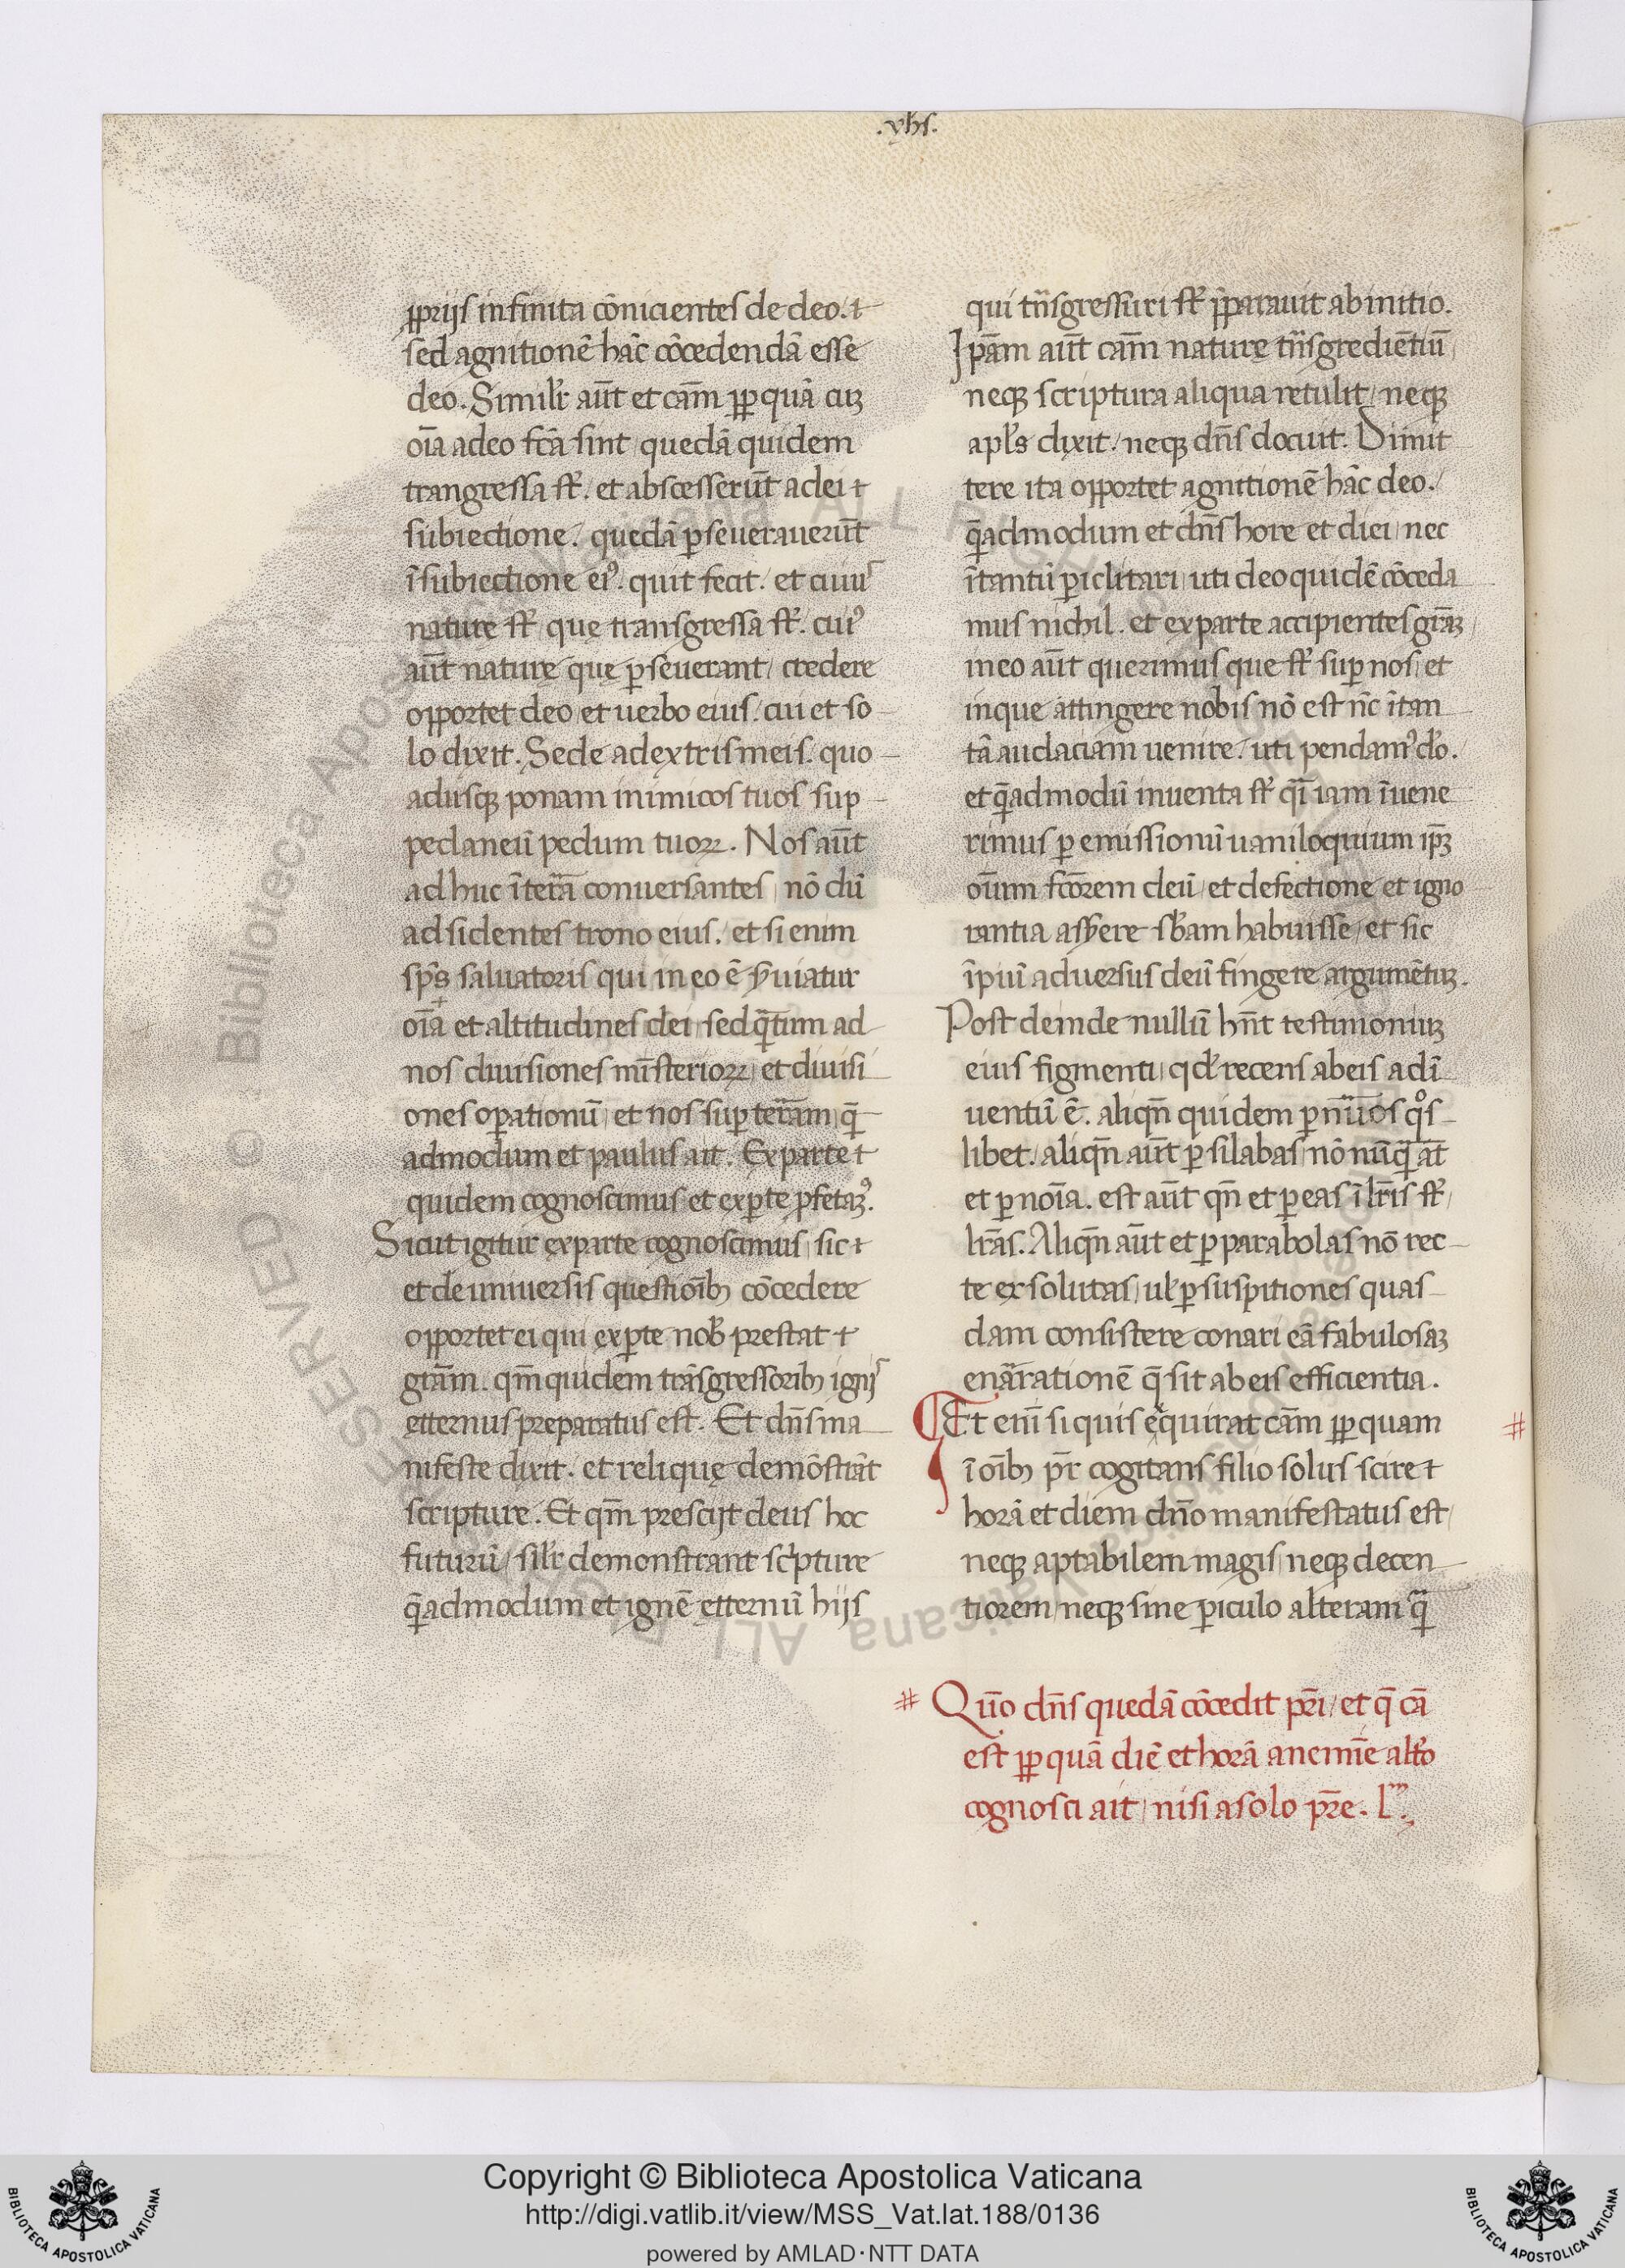 .yhs.
ꝓprijs infinita cōnicientes de deo. ⁊
sed agnitionē hāc cōcedendā esse
deo. Similr̄ aūt et cām ꝓp quā cuꝫ
oīa a deo fcā sint quedā quidem
trangressa st̄. et abscesserūt a dei ⁊
subiectione. quedā ꝑseuerauerūt
ī subiectione eiꝰ. quit fecit. et cuiuſ
nature st̄ que transgressa st̄. cuiꝰ
aūt naturę quę ꝑseuerant, credere
oꝓportet deo et uerbo eius. cui et so
lo dixit. Sede a dextris meis. quo
adusqꝫ ponam inimicos tuos sup
pedaneū pedum tuoꝝ. Nos aūt
ad huc ī terā conuersantes, nō dū
adsidentes trono eius. et si enim
sp̄s saluatoris qui in eo ē ẜuiatur
oīa et altitudines dei, sed q̄tum ad
nos diuisiones mīsterioꝝ, et diuisi
ones oꝑationū, et nos suꝑ terām, q̄
admodum et paulus ait. Ex parte ⁊
quidem cognoscimus et ex ꝑte ꝓfetaꝫꝰ.
Sicut igitur ex parte cognoscimus, sic ⁊
et de uniuersis questioībꝫ cōcedere
oꝓportet ei qui ex ꝑte nob̄ prestat ⁊
grām. qm̄ quidem trāsgressoribꝫ ignijſ
etternus preparatus est. Et dn̄s ma
nifeste dixit. et reliquę demōstrāt
scripture. Et qm̄ prescijt deus hoc
futurū, silr̄ demonstrant sc͛pture
q̄admodum et ignē etternū hijs
qui trn̄sgressuri st̄ p̄parauit ab initio.
Ipām aūt cām naturę trn̄sgrediētiū,
neqꝫ scriptura aliqua retulit, neqꝫ
apl̄s dixit, neqꝫ dn̄s docuit. Dimit
tere ita oꝓportet agnitionē hāc deo.
q̄admodum et dn̄s hore et diei, nec
ītantū ꝑiclitari, uti deo quidē cōceda
mus nichil. et ex parte accipientes grāꝫ
in eo aūt querimus que st̄ suꝑ nos, et
inque attingere nobis nō est n̄c ītan
tā audaciam uenire. uti pendamꝰ do̅.
et q̄admodū inuenta st̄ q̄ī iam īuene
rimus ꝑ emissionū uaniloquium ip̄ꝫ
oīum fcōrem deū, et defectione et igno
rantia asẜere sb̄am habuisse, et sic
īpiū aduersus deū fingere argumētuꝫ.
Post deinde nullū hn̄t testimoniuꝫ
eius figmenti, qd̄ recens ab eis adī
uentū ē. aliqn̄ quidem ꝑ nūōs qͦs
libet. aliqn̄ aūt ꝑ silabas nō nūq̄ āt
et ꝑ noīa. est aūt qn̄ et ꝑ eas ī lr̄is sr̄,
lrās. Aliqn̄ aūt et ꝑ parabolas nō rec
te exsolutas, ul̄ ꝑ suspitiones quas
dam consistere conari eā fabulosaꝫ
enārrationē q̄ sit ab eis efficientia.
Et enī si quis eq͛uirat cām ꝓp quam #
ī oībꝫ pr̄ cogitans filio solus scire ⁊
horā et diem dn̄o manifestatus est,
neqꝫ aptabilem magis, neqꝫ decen
tiorem, neqꝫ sine ꝑiculo alteram q̄
# Quō dn̄s quedā cōcedit pr̄i, et q̄ cā
est ꝓp quā diē et horā a nemīe alt̄o
cognosci ait, nisi a solo pr̄e. l‴.
Copyright © Biblioteca Apostolica Vaticana
http://digi.vatlib.it/view/MSS_Vat.lat.188/0136
powered by AMLAD·NTT DATA
BIBLIOTECA APOSTOLICA VATICANA
BIBLIOTECA APOSTOLICA VATICANA